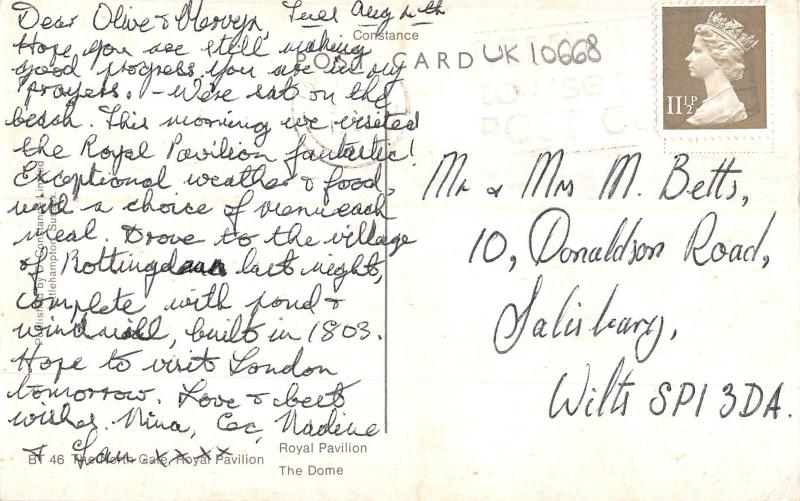 Dear Olive & Mervyn, Tues Aug 4th
Constance
Hope you are still making
good progress, you are in our
POST CARD UK 10668
prayers. - We're sat on the
beach. This morning we visited
the Royal Pavilion fantastic!
Exceptional weather & food,
with a choice of menu each
meal. Drove to the village
of Rottingdean last night,
complete with pond &
windmill, built in 1803.
Hope to visit London
tomorrow. Love & best
wishes. Nina, Cec, Nadine
& Ian xxxx
BT 46 The North Gate, Royal Pavilion
Royal Pavilion
The Dome
Published by D. Constance Limited
Littlehampton
11½P
POST
Mr & Mrs M. Betts,
10, Donaldson Road,
Salisbury,
Wilts SP1 3DA.